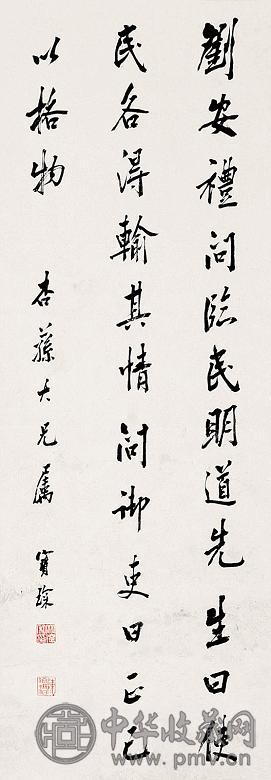 劉安禮問臨民明道先生曰使
民各得輸其情問御吏曰正己
以格物
杏蓀大兄属 寶琛
中华收藏网
www.pmv.cn